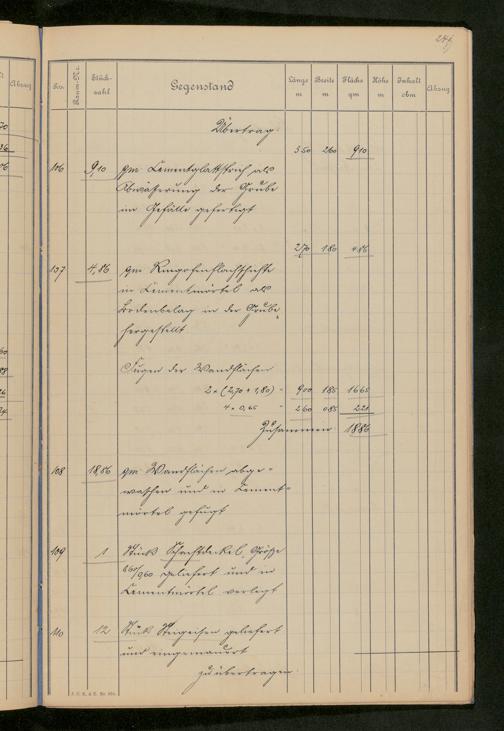 246
No. Raum-Nr. Stück-zahl Gegenstand Länge m Breite m Fläche qm Höhe m Inhalt cbm Abzug
Übertrag:
3 50 2 60 9 10
106 9,10 qm Cementglattstrich als
Abwässerung der Grube
im Gefälle gefertigt
2 70 1 80 4 86
107 4,86 qm Ringofenflachschichte
in Cementmörtel als
Bodenbelag in der Grube
hergestellt
Fugen der Wandflächen
2 × (2,70 + 1,80) = 9 00 1 85 16 65
4 × 0,65 = 2 60 0 85 2 21
Zusammen 18 86
108 18,86 qm Wandflächen abge-
waschen und in Cement-
mörtel gefugt
109 1 Stück Schachtdeckel, Größe
geliefert und in
Cementmörtel verlegt
110 12 Stück Steigeisen geliefert
und eingemauert
zu übertragen